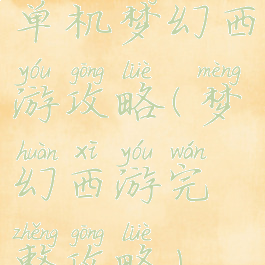 单机梦幻西
yóu gōng lüè mèng
游攻略(梦
huàn xī yóu wán
幻西游完
zhěng gōng lüè
整攻略)